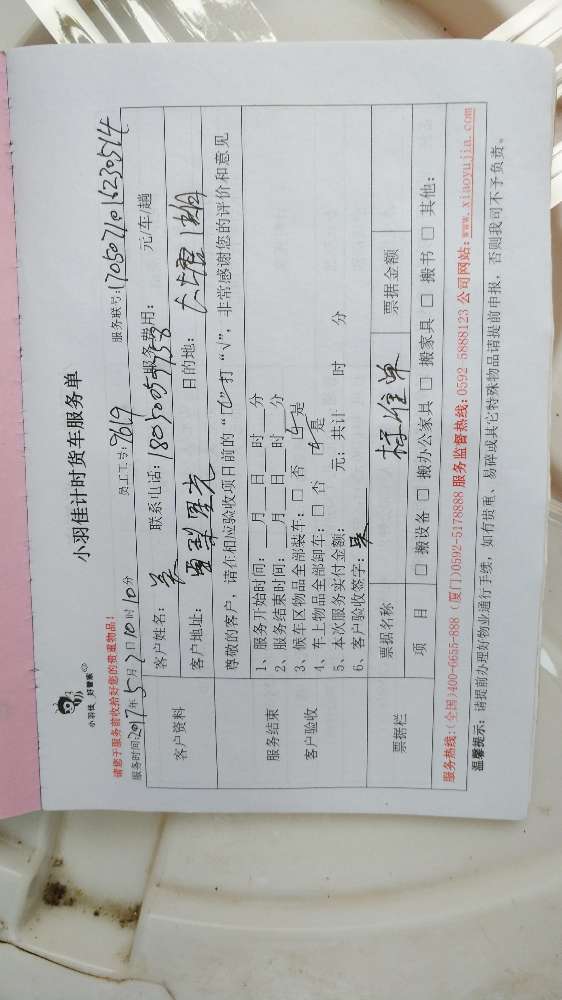 小羽佳 好管家
小羽佳计时货车服务单
请您于服务前收拾好您的贵重物品!
服务时间2017年5月7日10时10分 员工工号:9619 服务联号:1705071016230514
客户资料
客户姓名:吴 联系电话: 服务费用: 元/车/趟
客户地址: 星光 目的地:
尊敬的客户,请在相应验收项目前的“□”打“√”,非常感谢您的评价和意见
服务结束
客户验收
1、服务开始时间:__月__日__时__分
2、服务结束时间:__月__日__时__分
3、候车区物品全部装车:□ 否 是
4、车上物品全部卸车:□ 否 是
5、本次服务实付金额: 元;共计 时 分
6、客户验收签字:吴
票据栏
票据名称 标准单 票据金额
项 目 □ 搬设备 □ 搬办公家具 □ 搬家具 □ 搬书 □ 其他:
服务热线:(全国)400-6655-888 (厦门)0592-5178888 服务监督热线:0592-5888123 公司网站:www.xiaoyujia.com
温馨提示:请提前办理好物业通行手续,如有贵重、易碎或其它特殊物品请提前申报,否则我司不予负责。